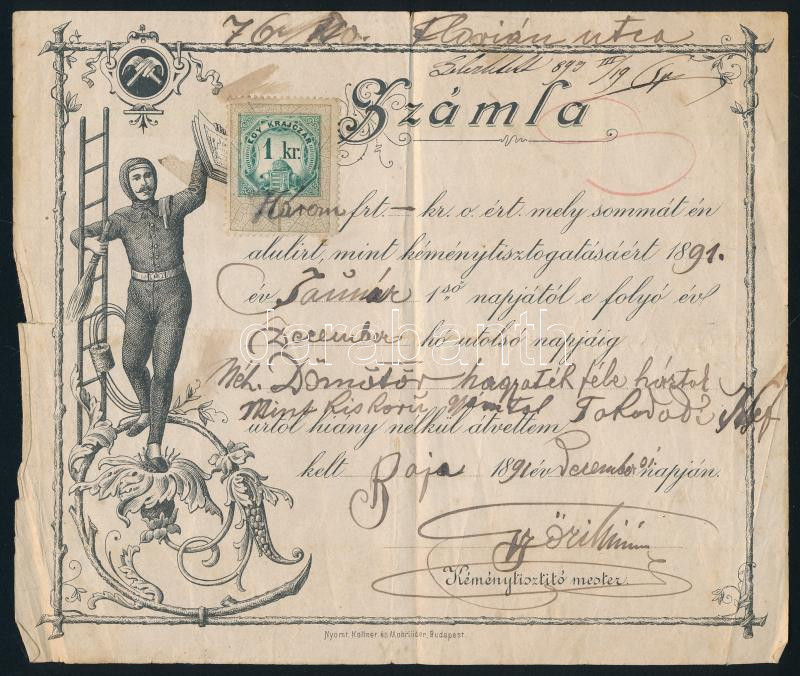 76 Florián utca
893 III/19
Számla
EGY KRAJCZÁR
1 kr.
Három frt. – kr. o. ért. mely sommát én
alulirt, mint kéménytisztogatásáért 1891.
év Január 1ső napjától e folyó év
December hó utolsó napjáig
Néh. Dömötör hagyaték féle háztol
mint kiskorú Jósef
úrtól hiány nélkül átvettem
kelt Baja 1891 év December napján.
Kéménytisztitó mester.
Nyomt. Kollner és Mohrlüder, Budapest.
darabanth